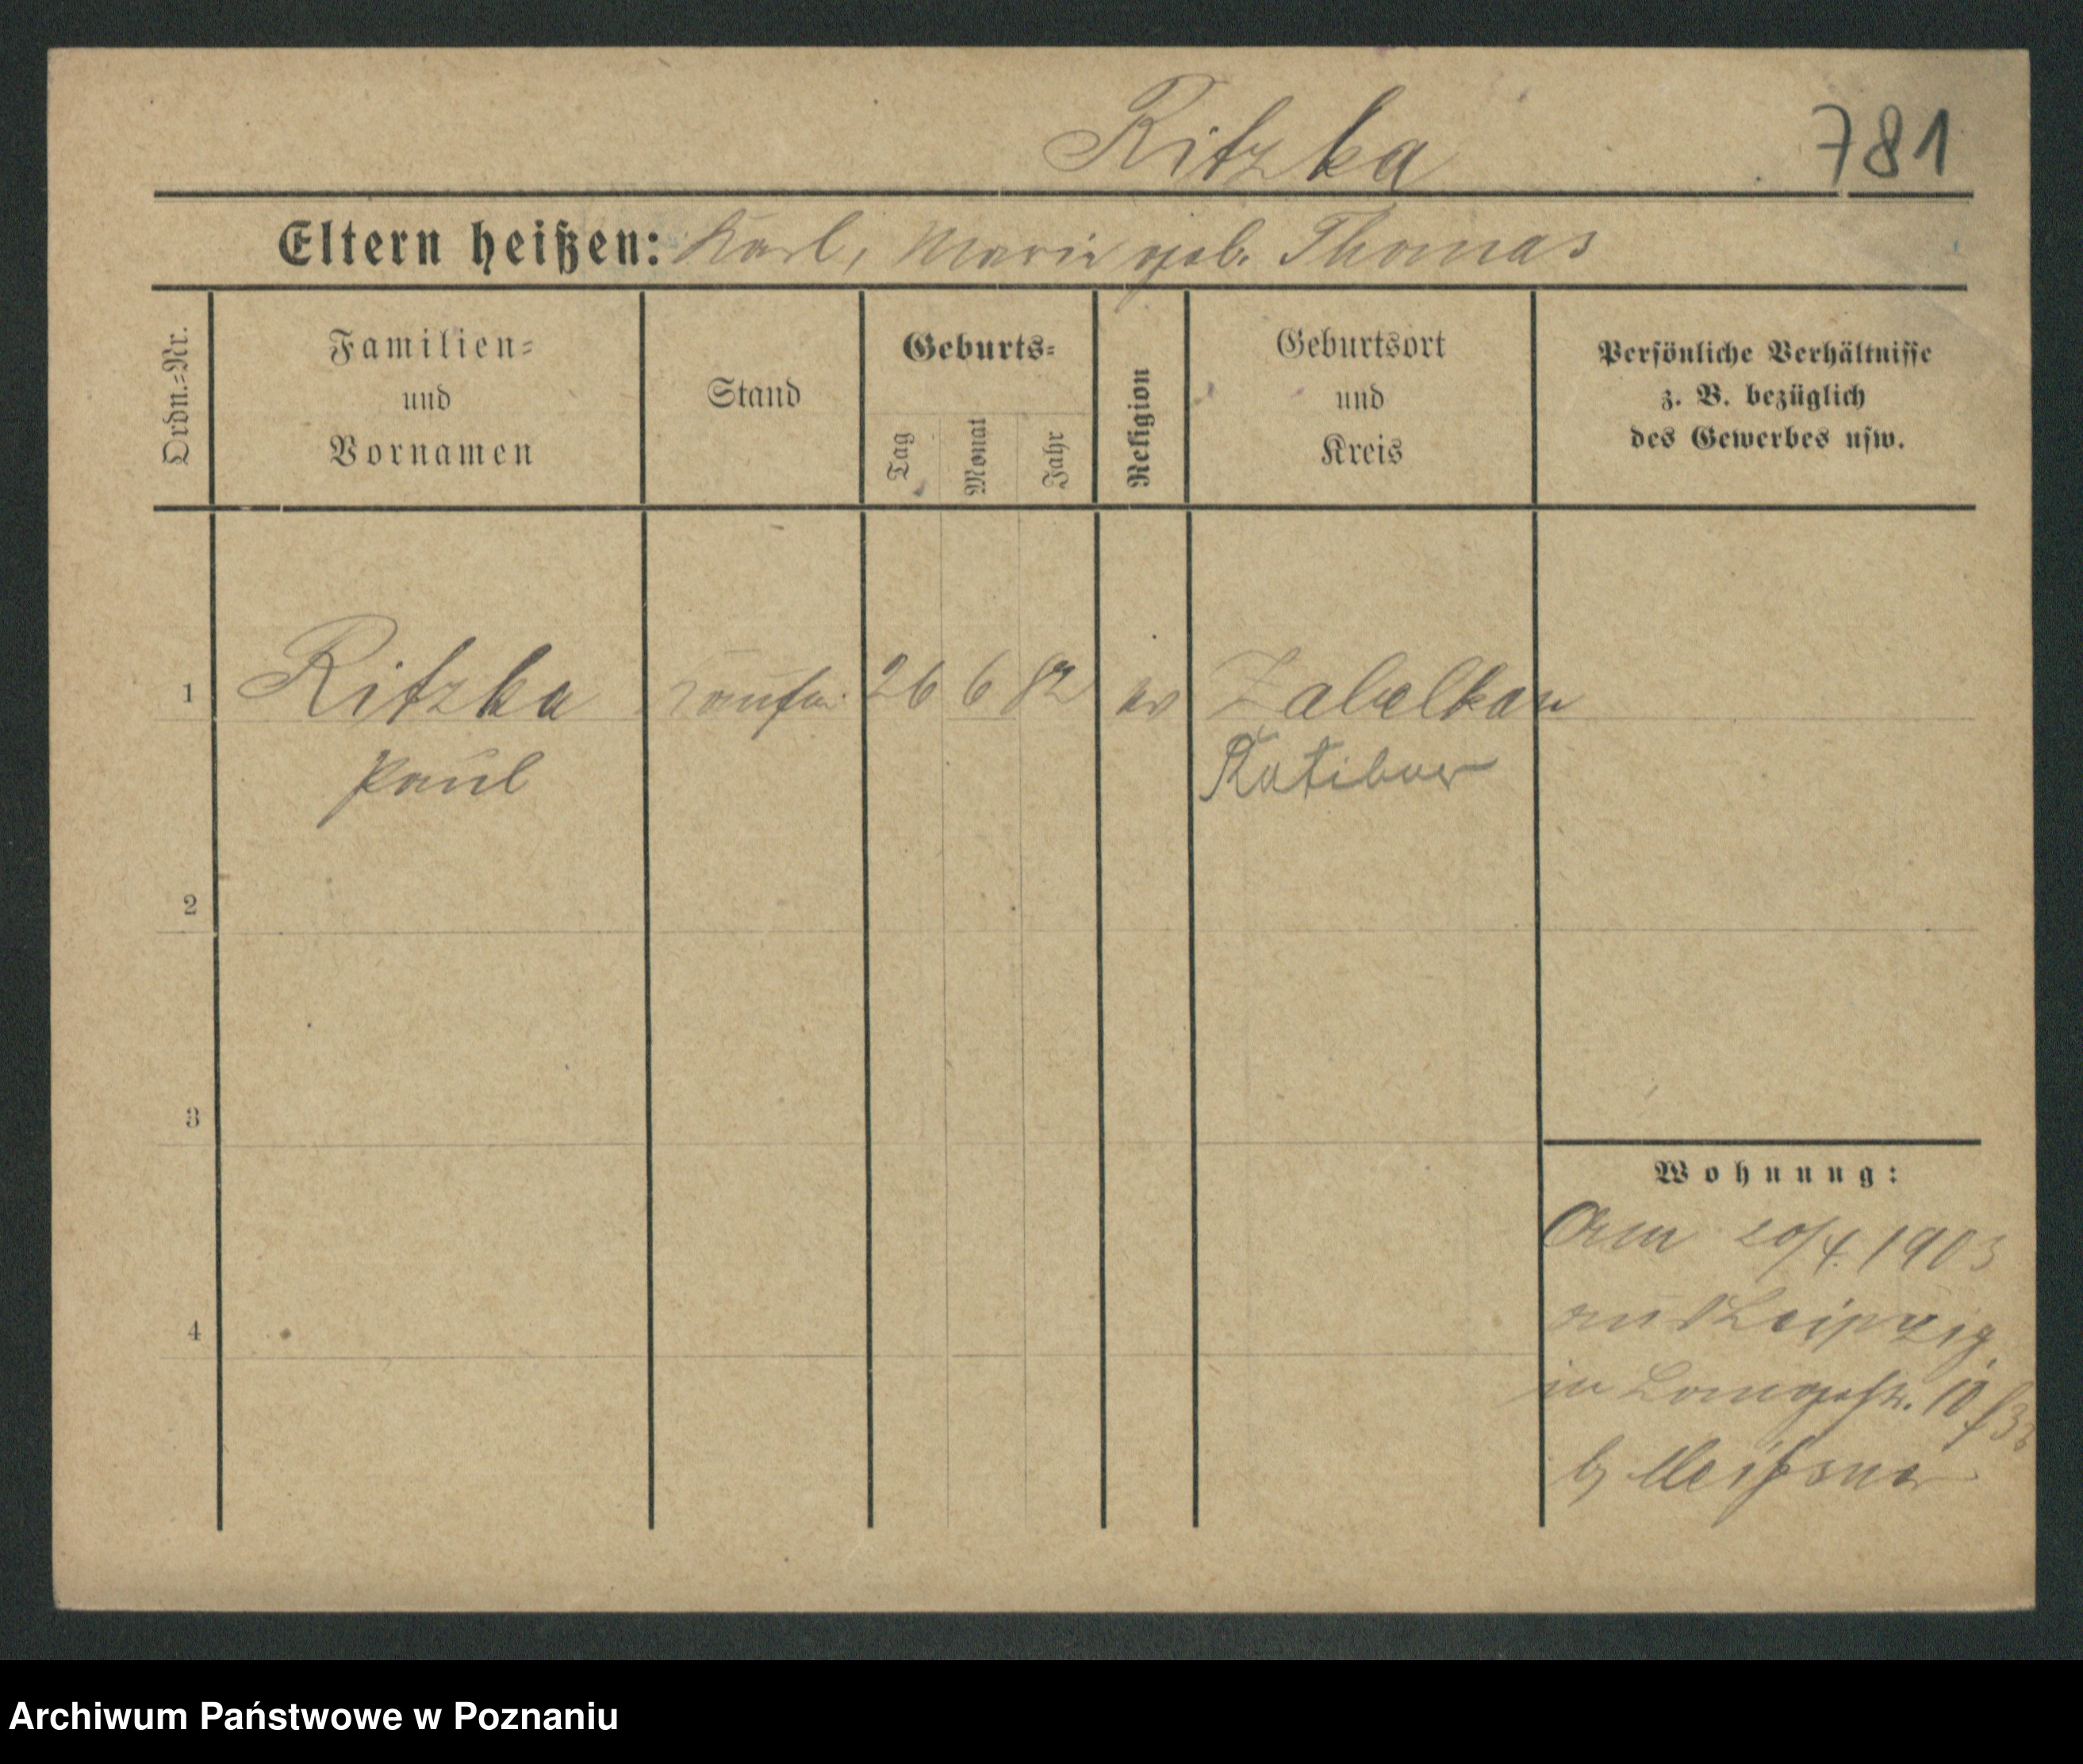 Ritzka 781
Eltern heißen: Karl, Marie geb. Thomas
Ordn.=Nr.
Familien=
und
Vornamen
Stand
Geburts=
Tag
Monat
Jahr
Religion
Geburtsort
und
Kreis
Persönliche Verhältnisse
z. B. bezüglich
des Gewerbes usw.
1 Ritzka Kaufm. 26 6 82 ev Zabelkau
Paul Ratibor
2
3
Wohnung:
Am 20/4. 1903
aus Leipzig
4
in Langestr. 10
b Meißner
Archiwum Państwowe w Poznaniu